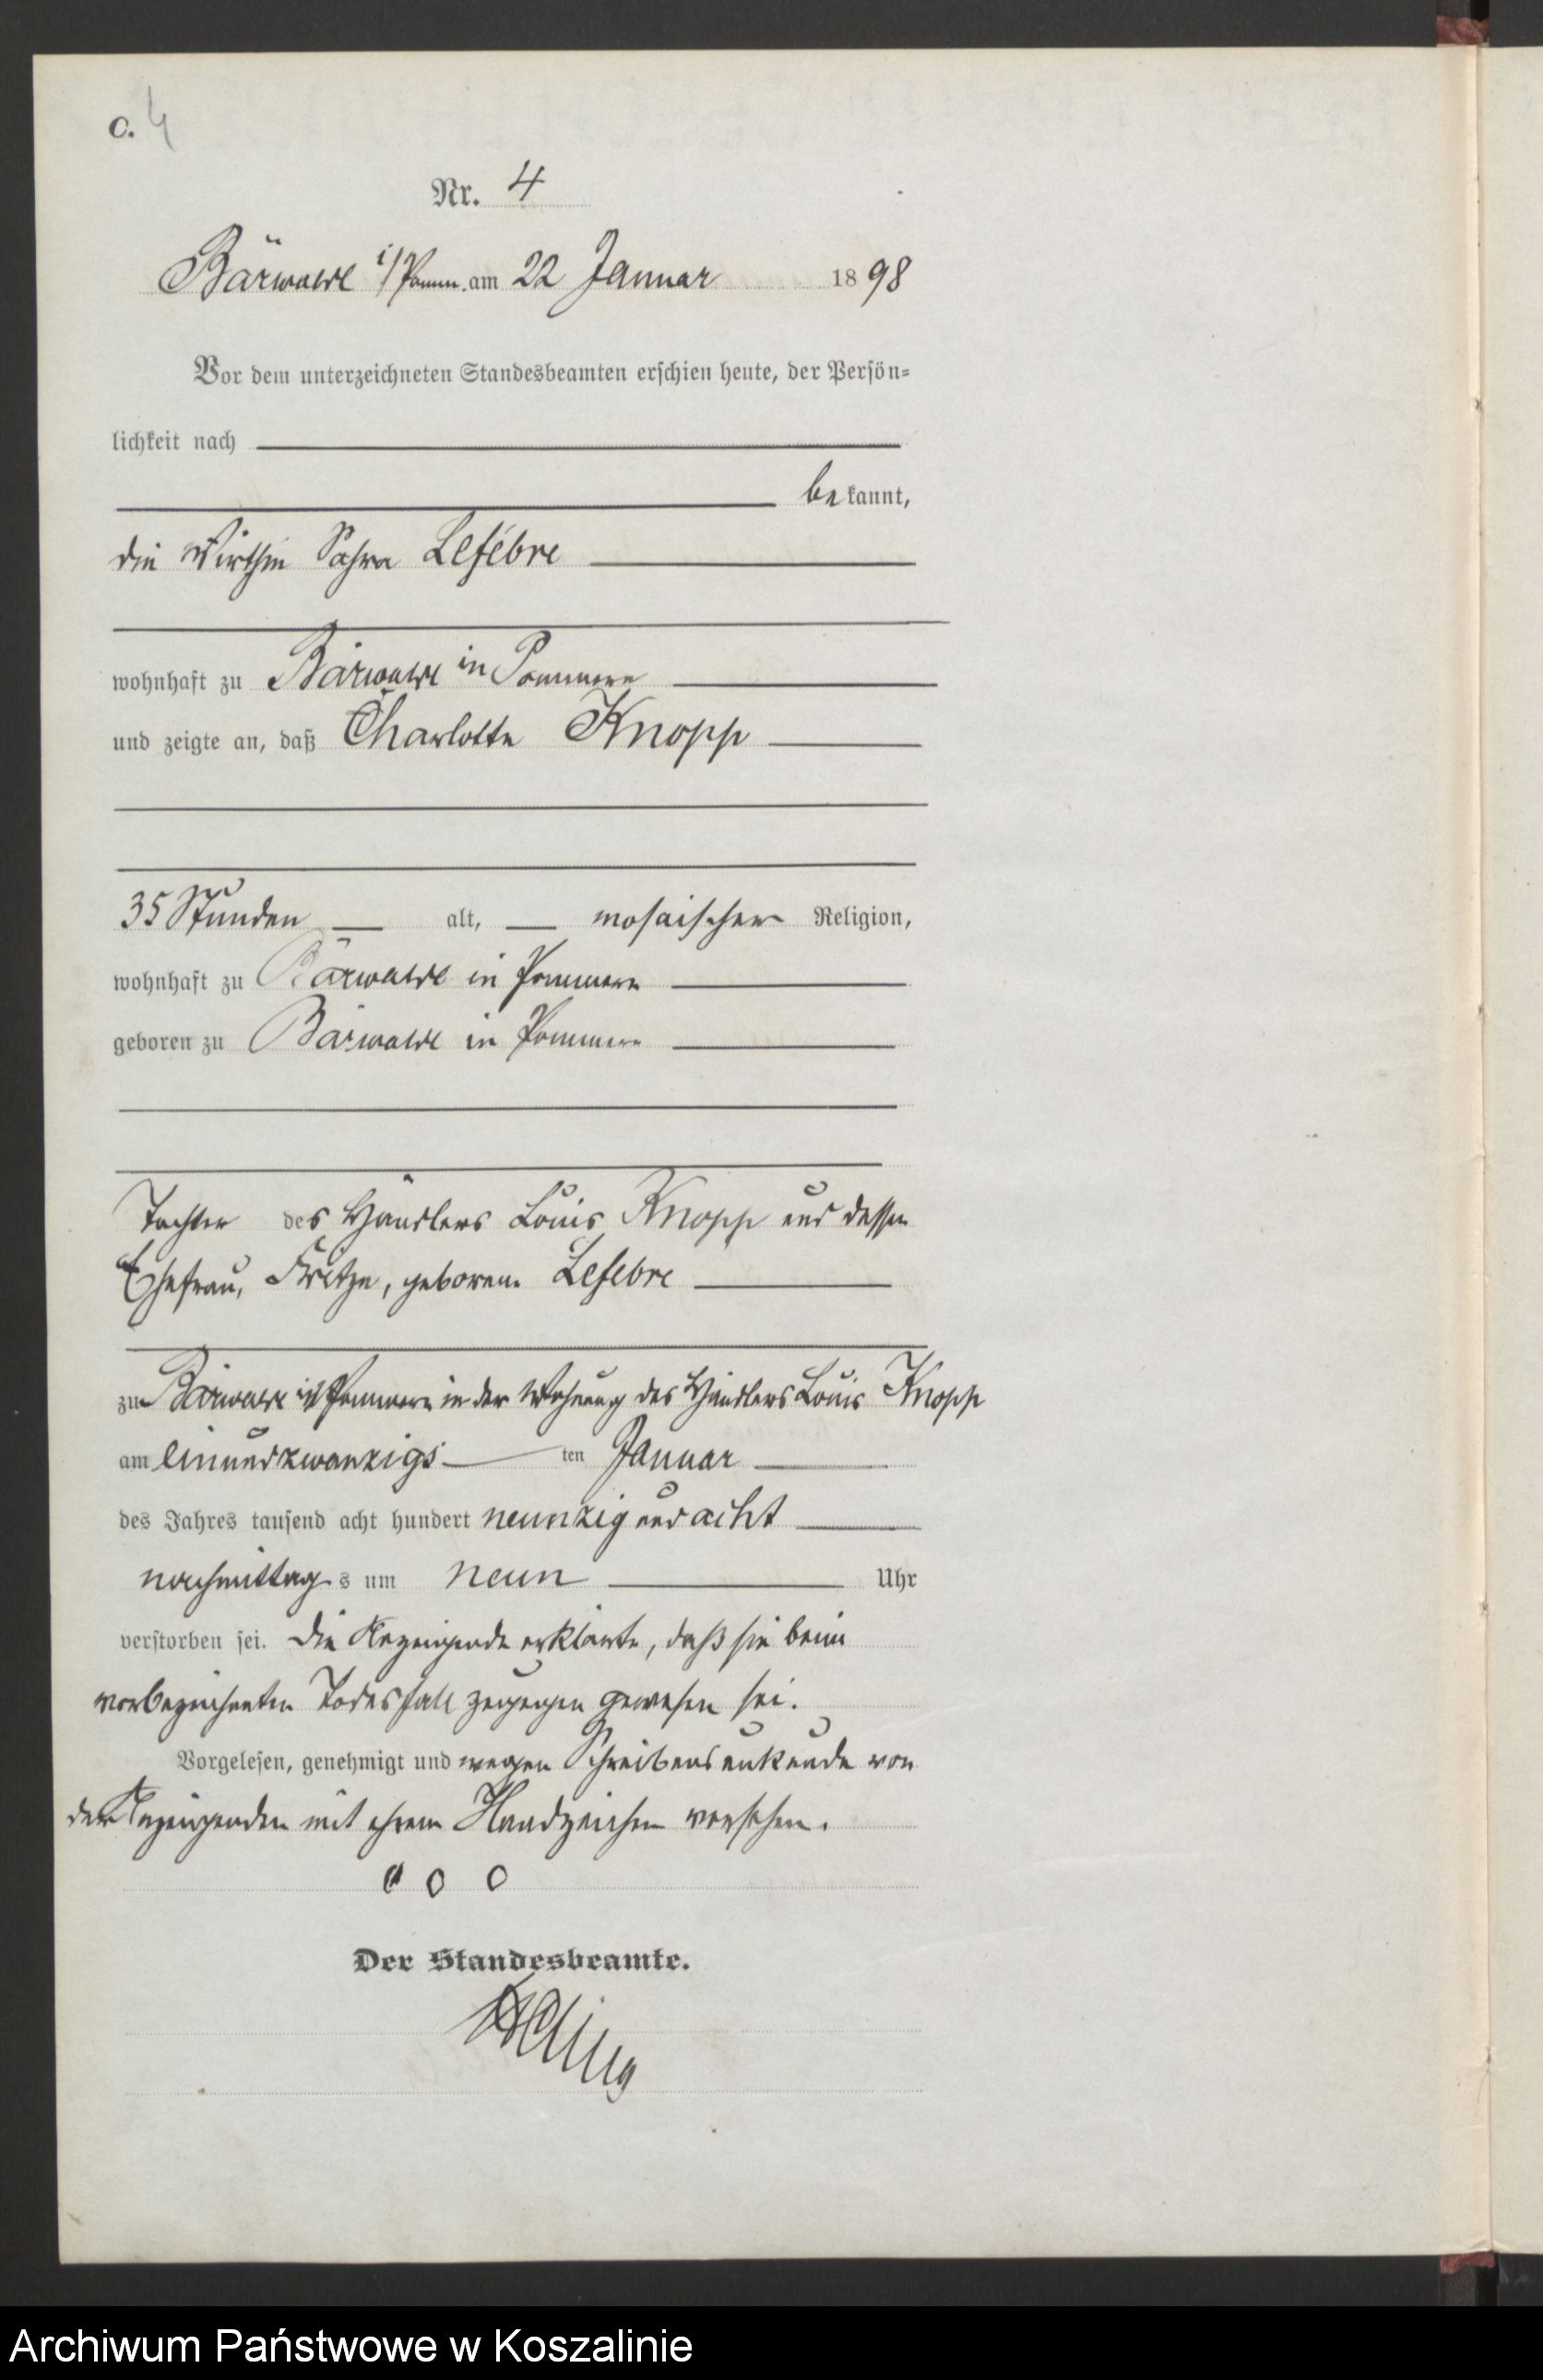 C. 4
Nr. 4
Bärwalde i/Pomm. am 22 Januar 1898
Vor dem unterzeichneten Standesbeamten erschien heute, der Persön-
lichkeit nach
bekannt,
die Wirthin Sahra Lefébre
wohnhaft zu Bärwalde in Pommern
und zeigte an, daß Charlotte Knopp
35 Stunden alt, mosaischer Religion,
wohnhaft zu Bärwalde in Pommern
geboren zu Bärwalde in Pommern
Tochter des Händlers Louis Knopp und dessen
Ehefrau, Fritze, geborene Lefebre
zu Bärwalde in Pommern in der Wohnung des Händlers Louis Knopp
am einundzwanzigsten Januar
des Jahres tausend acht hundert neunzig und acht
nachmittags um neun Uhr
verstorben sei. Die Anzeigende erklärte, daß sie beim
vorbezeichneten Todesfall zugegen gewesen sei.
Vorgelesen, genehmigt und wegen Schreibensunkunde von
der Anzeigenden mit ihrem Handzeichen versehen.
o o o
Der Standesbeamte.
Archiwum Państwowe w Koszalinie